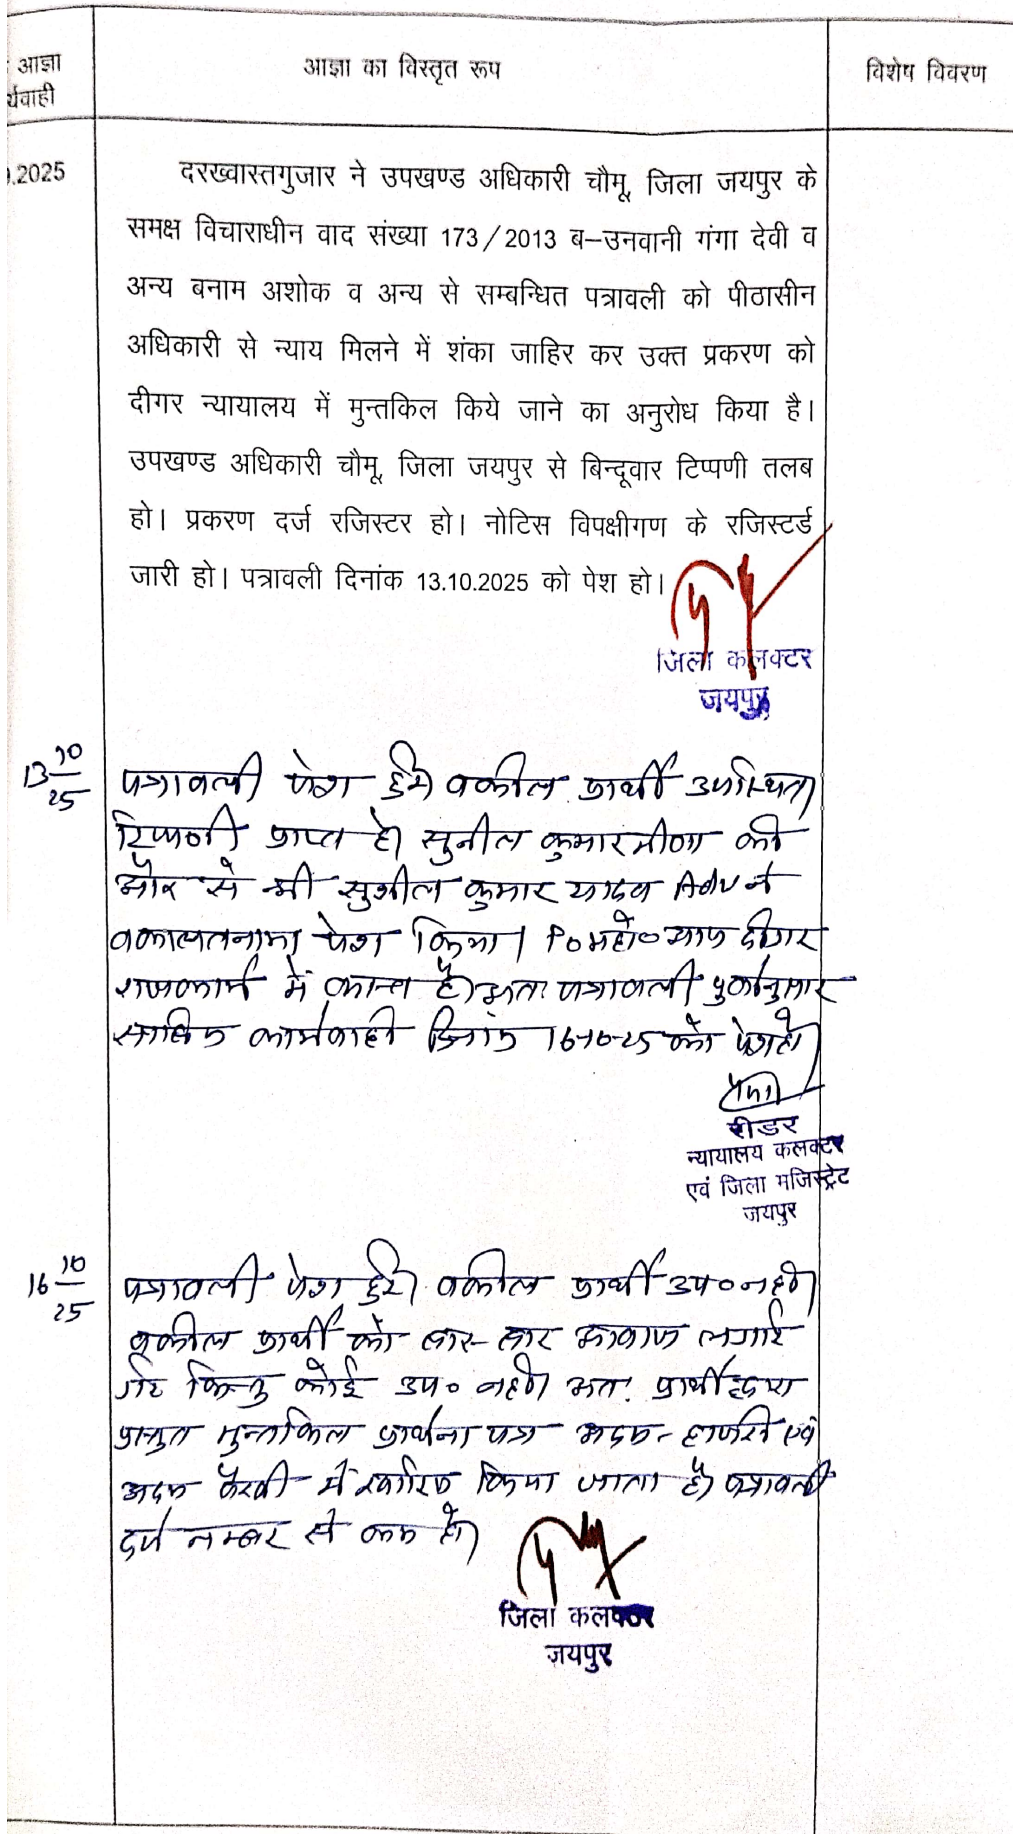 आज्ञा
र्यवाही
आज्ञा का विस्तृत रूप
विशेष विवरण
.2025
दरख्वास्तगुजार ने उपखण्ड अधिकारी चौमू, जिला जयपुर के
समक्ष विचाराधीन वाद संख्या 173/2013 ब–उनवानी गंगा देवी व
अन्य बनाम अशोक व अन्य से सम्बन्धित पत्रावली को पीठासीन
अधिकारी से न्याय मिलने में शंका जाहिर कर उक्त प्रकरण को
दीगर न्यायालय में मुन्तकिल किये जाने का अनुरोध किया है।
उपखण्ड अधिकारी चौमू, जिला जयपुर से बिन्दूवार टिप्पणी तलब
हो। प्रकरण दर्ज रजिस्टर हो। नोटिस विपक्षीगण के रजिस्टर्ड
जारी हो। पत्रावली दिनांक 13.10.2025 को पेश हो।
जिला कलक्टर
जयपुर
13 10/25
पत्रावली पेश हुई। वकील प्रार्थी उपस्थित।
टिप्पणी प्राप्त है। सुनील कुमार मीणा की
ओर से श्री सुशील कुमार यादव Adv ने
वकालतनामा पेश किया। P०महो० आज दीगर
राजकार्य में व्यस्त है। अतः पत्रावली पूर्वानुसार
कार्यवाही दिनांक 16-10-25 को पेश हो।
रीडर
न्यायालय कलक्टर
एवं जिला मजिस्ट्रेट
जयपुर
16 10/25
पत्रावली पेश हुई। वकील प्रार्थी उप० नही।
वकील प्रार्थी को बार-बार आवाज लगाई
गई किन्तु कोई उप० नही। अतः प्रार्थी द्वारा
प्रस्तुत मुन्तकिल प्रार्थना पत्र अदम-हाजरी एवं
अदम पैरवी में खारिज किया जाता है। पत्रावली
दर्ज नम्बर से कम हो।
जिला कलक्टर
जयपुर